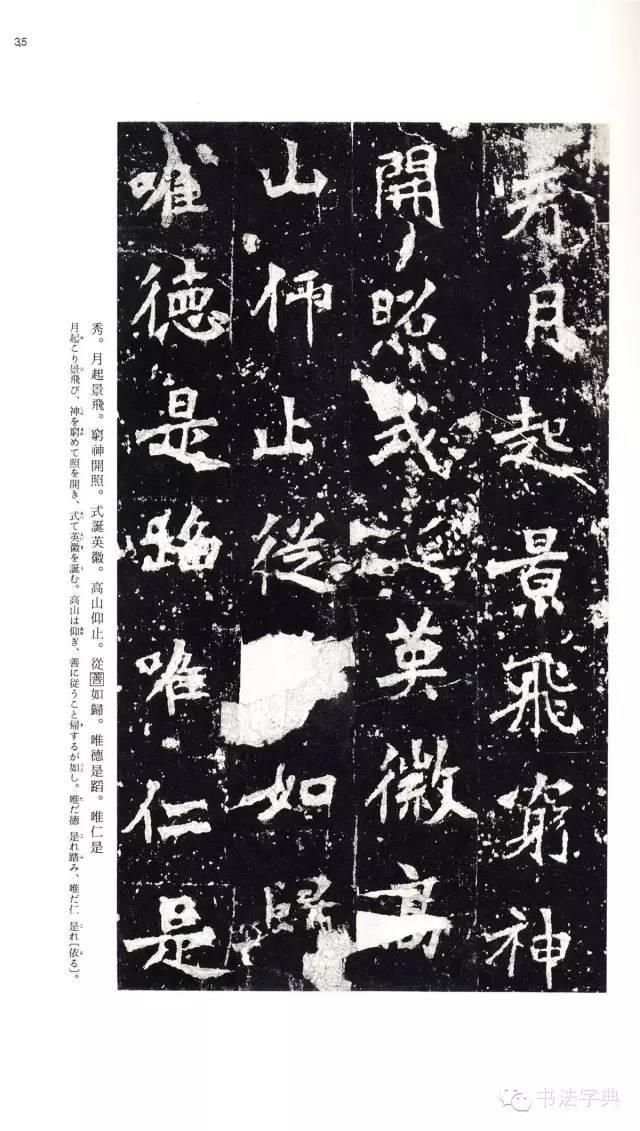 35
秀月起景飛窮神
開照式誕英徽高
山仰止從如歸
唯德是蹈唯仁是
秀。月起景飛。窮神開照。式誕英徽。高山仰止。從善如歸。唯德是蹈。唯仁是
月起こり景飛び、神を窮めて照を開き、式て英徽を誕む。高山は仰ぎ、善に従うこと帰するが如し。唯だ徳 是れ踏み、唯だ仁 是れ〔依る〕。
书法字典